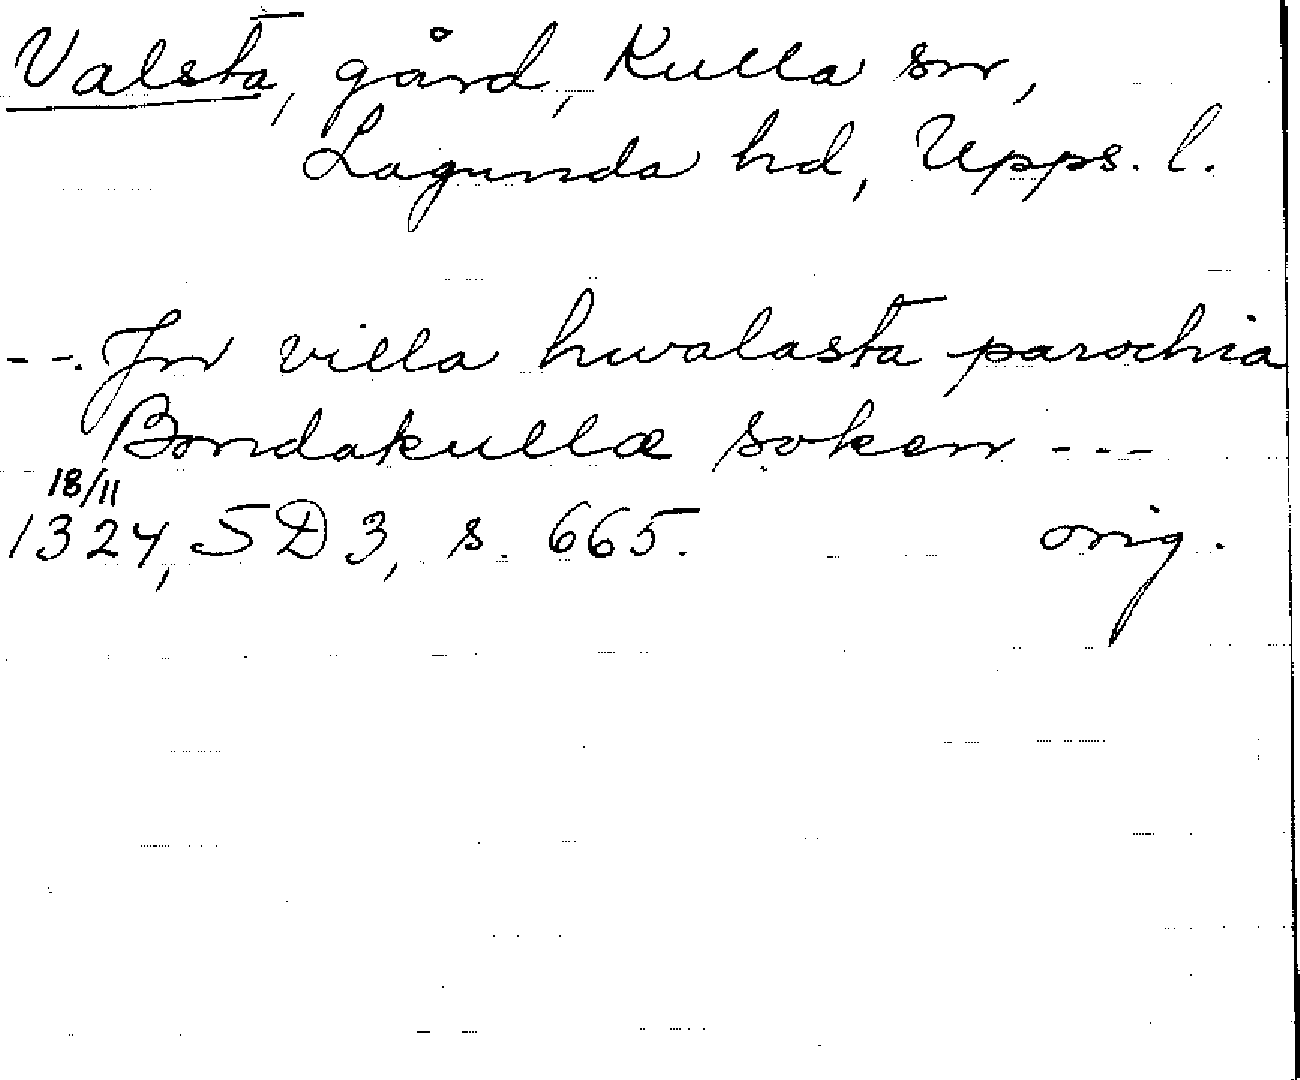 Valsta, gård, Kulla sn,
Lagunda hd, Upps. l.
--. Jn villa hwalasta parochia
Bondakullæ soken ---
18/11
1324, SD 3, s. 665. orig.